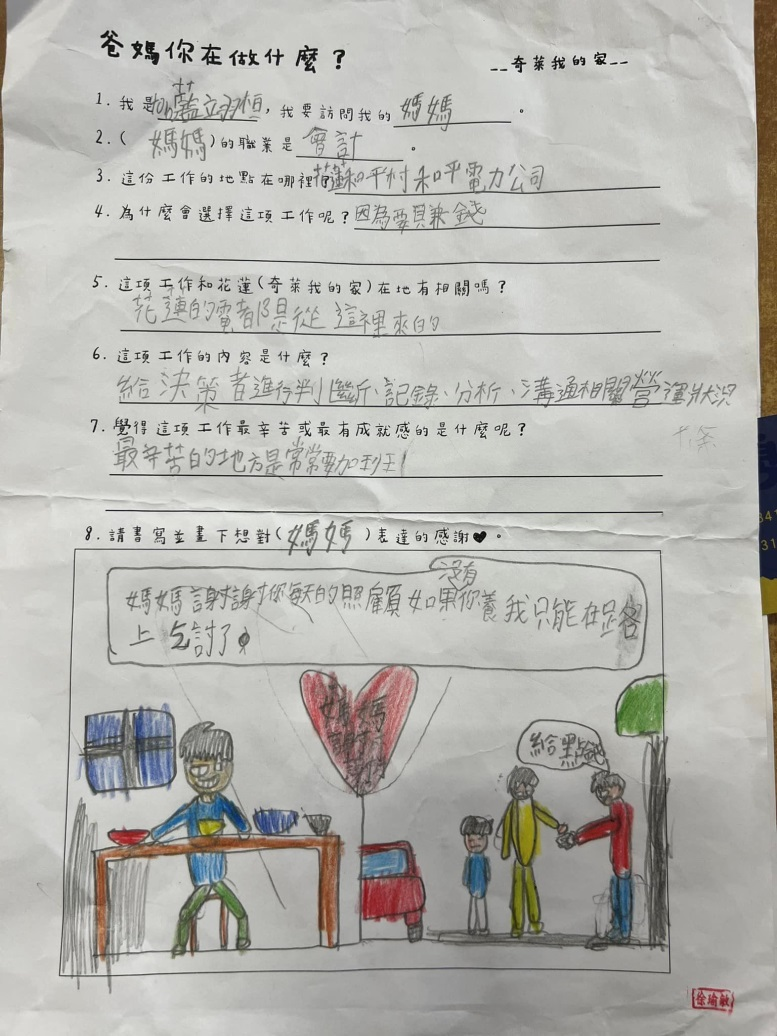 爸媽你在做什麼？
--奇萊我的家--
1. 我是藍立翊恒，我要訪問我的媽媽。
2.(媽媽)的職業是會計。
3. 這份工作的地點在哪裡？花蓮和平村和平電力公司
4. 為什麼會選擇這項工作呢？因為要賺錢
5. 這項工作和花蓮(奇萊我的家)在地有相關嗎？
花蓮的電都是從這裡來的
6. 這項工作的內容是什麼？
給決策者進行判斷、記錄、分析、溝通相關營運狀況
7. 覺得這項工作最辛苦或最有成就感的是什麼呢？
最辛苦的地方是常常要加到班
8. 請書寫並畫下想對(媽媽)表達的感謝♥。
沒有
媽媽謝謝你每天的照顧如果你養我只能在路
上乞討了
媽媽
謝謝
給點錢
徐瑜敏